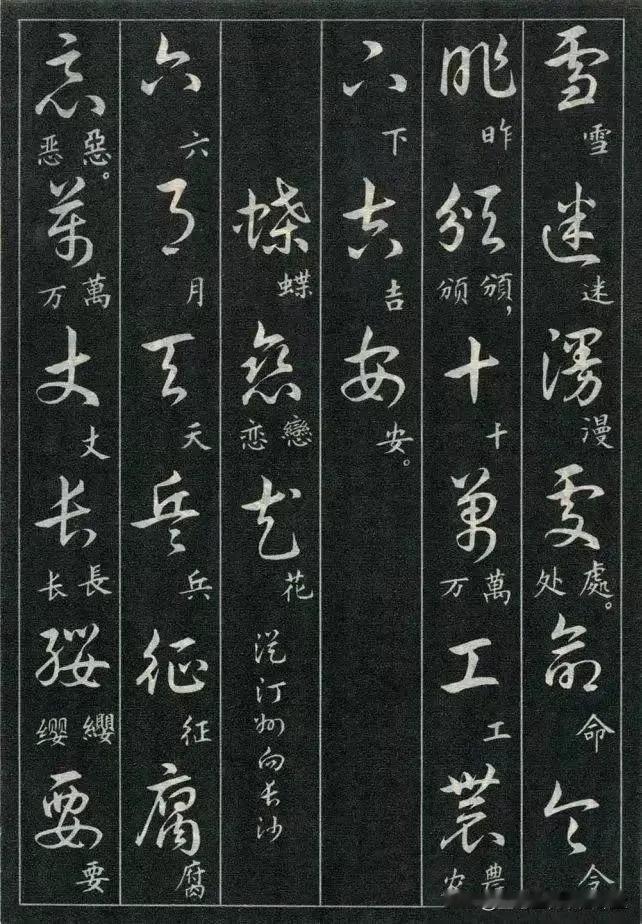 雪迷漫處命令
雪 迷 漫 處。处 命 令
昨頒十萬工農
昨 頒,颁 十 萬万 工 農农
下吉安
下 吉 安。
蝶戀花 從汀州向長沙
蝶 戀恋 花
六月天兵征腐
六 月 天 兵 征 腐
惡萬丈長纓要
惡。恶 萬万 丈 長长 纓缨 要